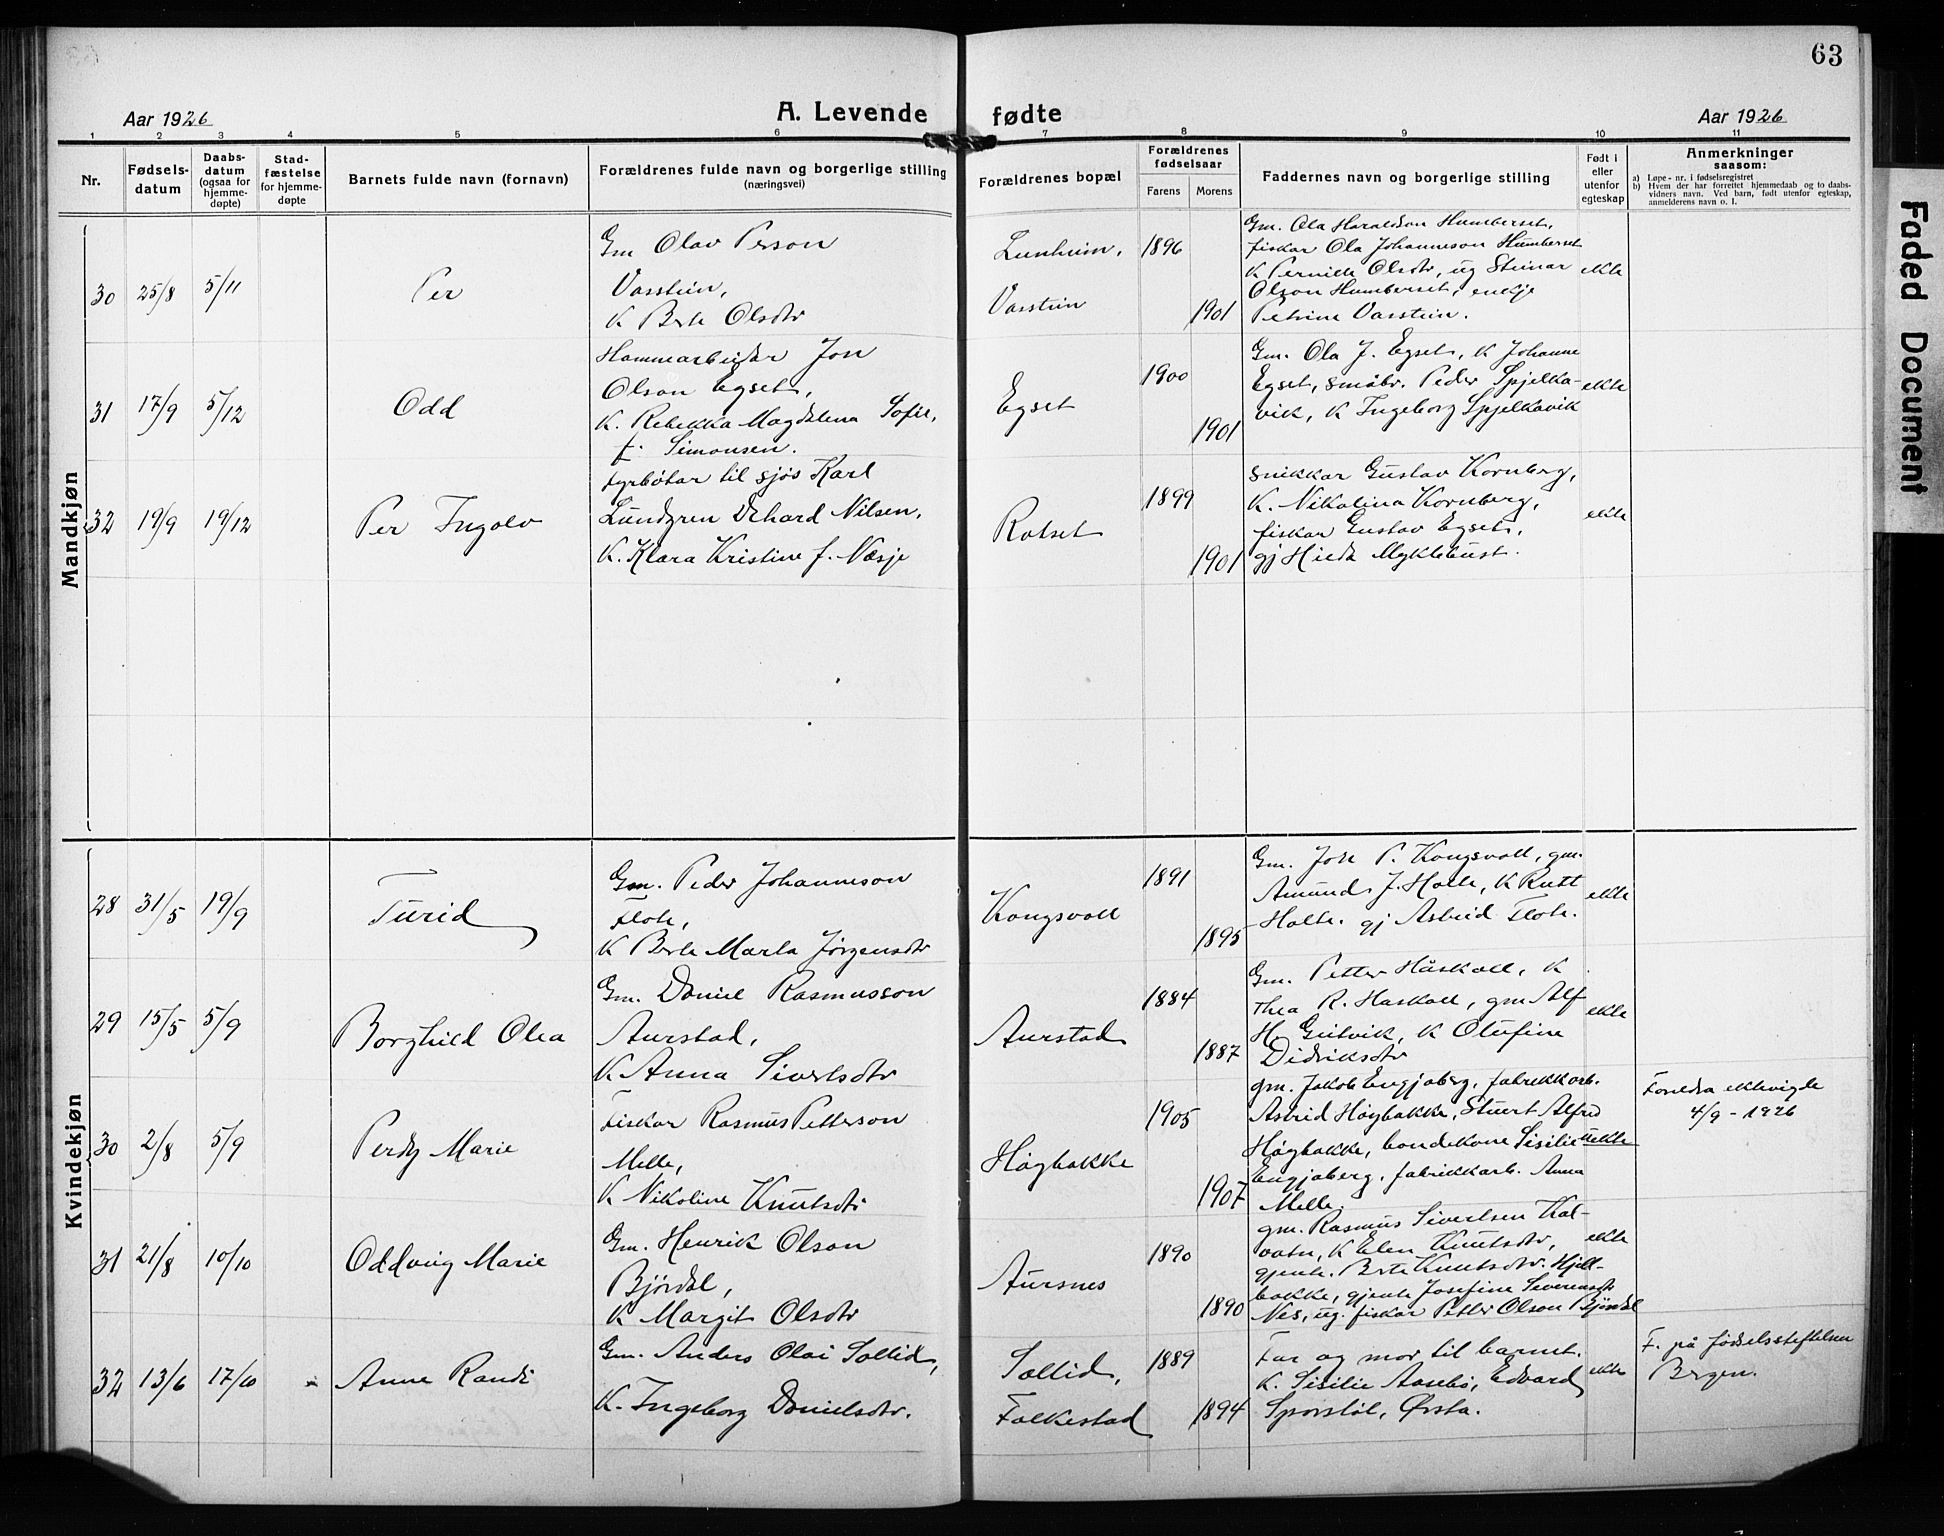 63
Aar 1926
A. Levende fødte
Aar 1926
1 2 3 4 5 6 7 8 9 10 11
Nr.
Fødsels-
datum
Daabs-
datum
(ogsaa for
hjemme-
døpte)
Stad-
fæstelse
for hjemme-
døpte
Barnets fulde navn (fornavn)
Forældrenes fulde navn og borgerlige stilling
(næringsvei)
Forældrenes bopæl
Forældrenes
fødselsaar
Farens Morens
Faddernes navn og borgerlige stilling
Født i
eller
utenfor
egteskap
Anmerkninger
saasom:
a) Løpe-nr. i fødselsregistret
b) Hvem der har forrettet hjemmedaab og to daabs-
vidners navn. Ved barn, født utenfor egteskap,
anmelderens navn o. l.
Mandkjøn
30 25/8 5/11 Per
Gm Olav Person
Vasstein,
K Berte Olsdtr
Lunheim,
Vasstein
1896
1901
Gm. Ola Haraldson Humberset,
fiskar Ola Johanneson Humberset
K Pernille Olsdtr, ug Steinar
Olson Humberset, enkje
Petrine Vasstein.
ekte
31 17/9 5/12 Odd
Hamnearbeidar Jon
Olson Egset,
K. Rebekka Magdalena Sofie,
f. Simonsen.
Egset
1900
1901
Gm. Ola J. Egset, K Johanne
Egset, småbr. Peder Spjelka-
vik, K Ingeborg Spjelkavik
ekte
32 19/9 19/12 Per Ingolv
fyrbøtar til sjøs Karl
Lundgren Dehard Nilsen,
K. Klara Kristine f. Næsje
Rotset
1899
1901
snikkar Gustav Kornberg,
K. Nikolina Kornberg,
fiskar Gustav Egset,
gj Hilda Myklebust.
ekte
Kvindekjøn
28 31/5 19/9 Turid
Gm. Peder Johanneson
Flote,
K Berte Marta Jørgensdtr
Kongsvoll
1891
1895
Gm. Jon P. Kongsvoll, gm.
Amund J. Holte, K Rutt
Holte. gj Astrid Flote.
ekte
29 15/5 5/9 Borghild Olea
Gm. Daniel Rasmusson
Aurstad,
K Anna Sivertsdtr
Aurstad
1884
1887
Gm. Petter Håskoll, K
Thea R. Haskoll, gm Alf
H. Geitvik, K Olufine
Didriksdtr
ekte
30 2/8 5/9 Perdy Marie
Fiskar Rasmus Petterson
Melle,
K Nikoline Knutsdtr
Høgbakke
1905
1907
gm. Jakob Engjaberg, fabrikkarb.
Astrid Høgbakke, Stuert Alfred
Høgbakke, bondekone Sisilie
Engjaberg, fabrikkarb. Anna
Melle.
uekte
Foreldra ektevigde
4/9 - 1926
31 21/8 10/10 Oddveig Marie
Gm. Henrik Olson
Bjørdal,
K Margit Olsdtr
Aursnes
1890
1890
gm. Rasmus Sivertsen Kal-
vatn, K Elen Knutsdtr,
gjente. Berte Knutsdtr. Hjell-
bakke, gjente Josefine Severinsdtr
Nes, ug. fiskar Petter Olson Bjørdal
ekte
32 13/6 17/10 Anne Randi
Gm. Anders Olai Solliid,
K. Ingeborg Danielsdtr.
Sollid,
Folkestad
1889
1894
Far og mor til barnet.
K. Sisilie Aasebø, Edvard
Sporstøl, Ørsta.
ekte
F. på fødselsstiftelsen
Bergen.
Faded Document